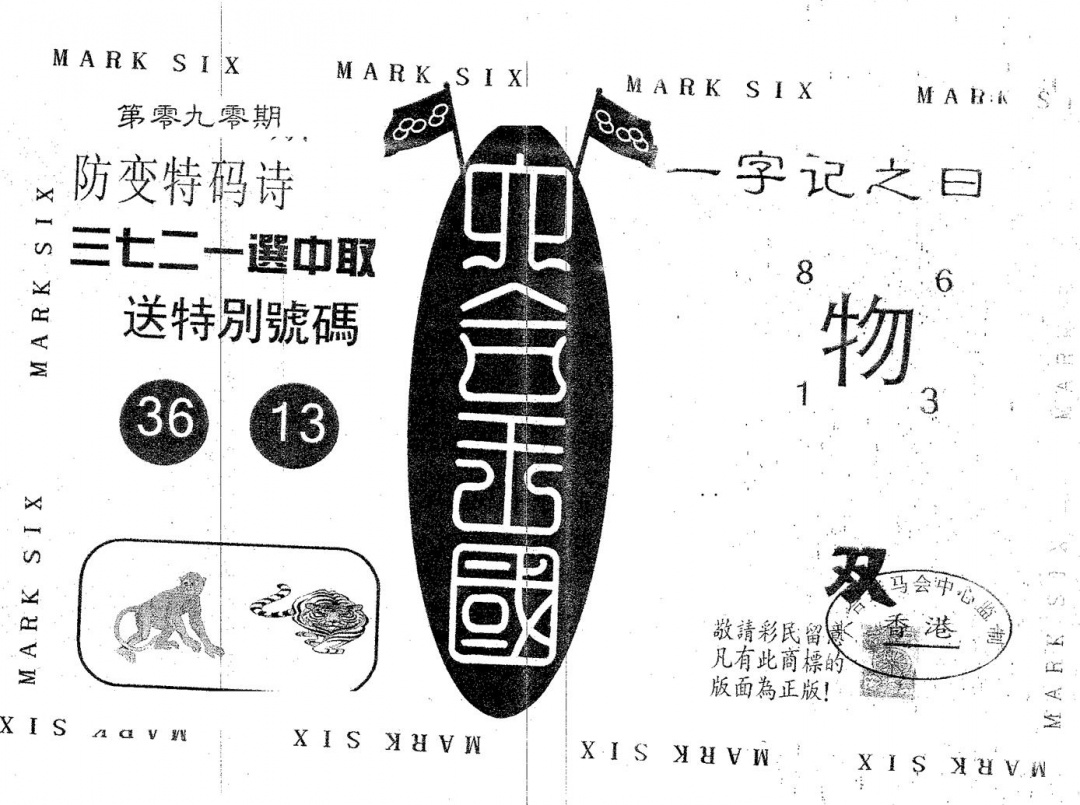 MARK SIX
MARK SIX
MARK SIX
第零九零期
防变特码诗
三七二一選中取
送特別號碼
36 13
MARK SIX
MARK SIX
六合王國
一字记之曰
8 6
物
1 3
双
马会中心监制
香港
敬請彩民留意
凡有此商標的
版面為正版!
MARK SIX
MARK SIX
MARK SIX
MARK SIX
MARK SIX